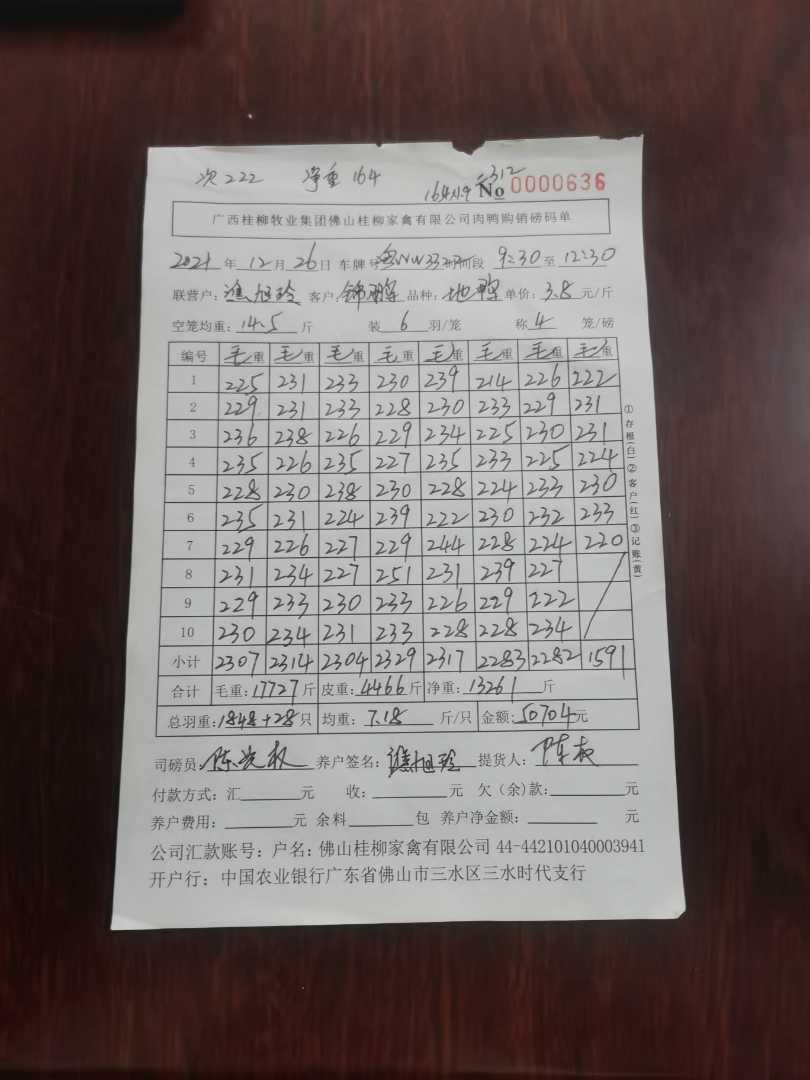 次222 净重164
164×1.9=312
No 0000636
广西桂柳牧业集团佛山桂柳家禽有限公司肉鸭购销磅码单
2021年12月26日 车牌号: 时间段 9:30至12:30
联营户: 旭玲 客户:锦鹏 品种:地鸭 单价:3.8元/斤
空笼均重:14.5斤 装6羽/笼 称4笼/磅
编号 毛重 毛重 毛重 毛重 毛重 毛重 毛重 毛重
1 225 231 233 230 239 214 226 222
2 229 231 233 228 230 233 229 231
3 236 238 226 229 234 225 230 231
4 235 226 235 227 235 233 225 224
5 228 230 238 230 228 224 233 230
6 235 231 224 239 222 230 232 233
7 229 226 227 229 244 228 224 220
8 231 234 227 251 231 239 227
9 229 233 230 233 226 229 222
10 230 234 231 233 228 228 234
小计 2307 2314 2304 2329 2317 2283 2282 1591
合计 毛重:17727斤 皮重:4466斤 净重:13261斤
总羽重:1848+28只 均重:7.18斤/只 金额:50704元
①存根(白)②客户(红)③记账(黄)
司磅员: 养户签名: 旭玲 提货人:
付款方式:汇 元 收: 元 欠(余)款: 元
养户费用: 元 余料 包 养户净金额: 元
公司汇款账号:户名:佛山桂柳家禽有限公司 44-442101040003941
开户行:中国农业银行广东省佛山市三水区三水时代支行